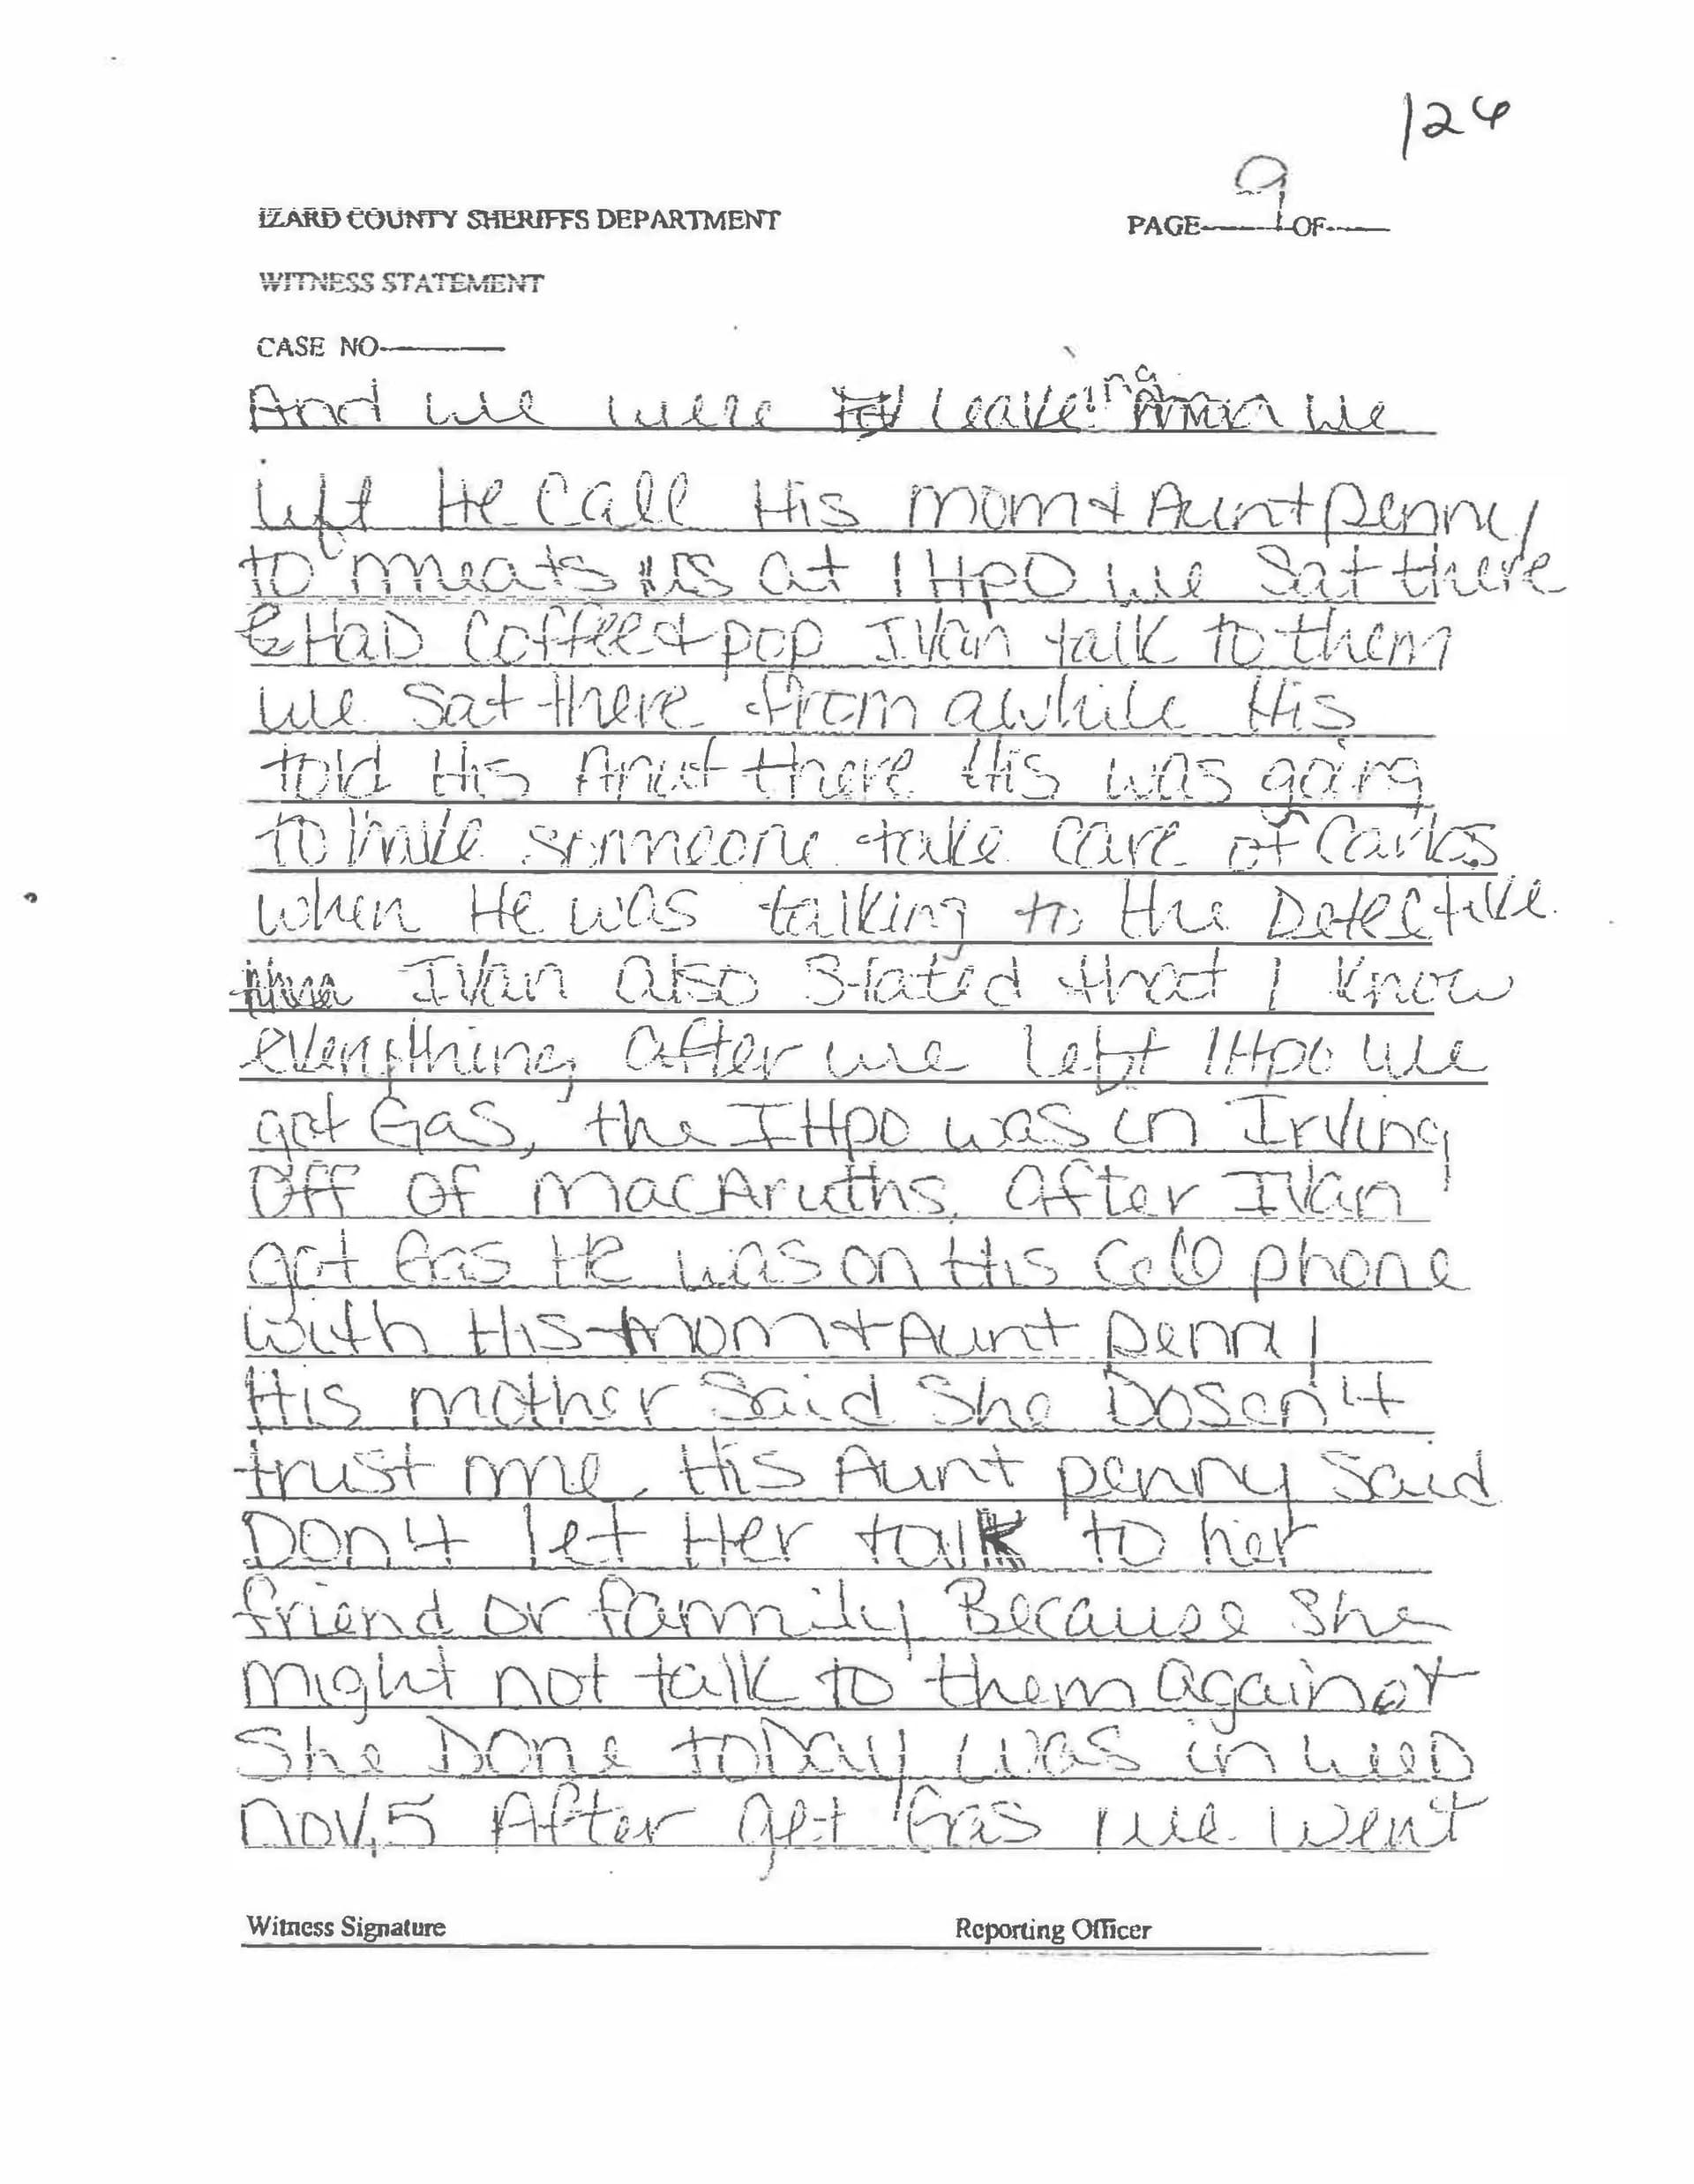 126
9
IZARD COUNTY SHERIFFS DEPARTMENT PAGE OF
WITNESS STATEMENT
CASE NO
And we were leaveing we
left He Call His mom & Aunt Penny
to meats us at IHPO we Sat there
& HaD Coffee & pop IVan talk to them
we Sat there from awhile His
told His Anut there His was going
to have someone take Care of Carlos
when He was talking to the Detective
IVan also Stated that I know
everything, after we left IHpo we
got Gas, the IHpo was in Irving
Off Of MacAruths, after IVan
got Gas He was on His Cell phone
with His mom & Aunt Penny
His mother Said She Dosen't
trust me, His Aunt penny Said
Don't let Her talk to her
friend or fammily Because She
might not talk to them against
She Done toDay was in weD
nov,5 After get Gas we went
Witness Signature Reporting Officer